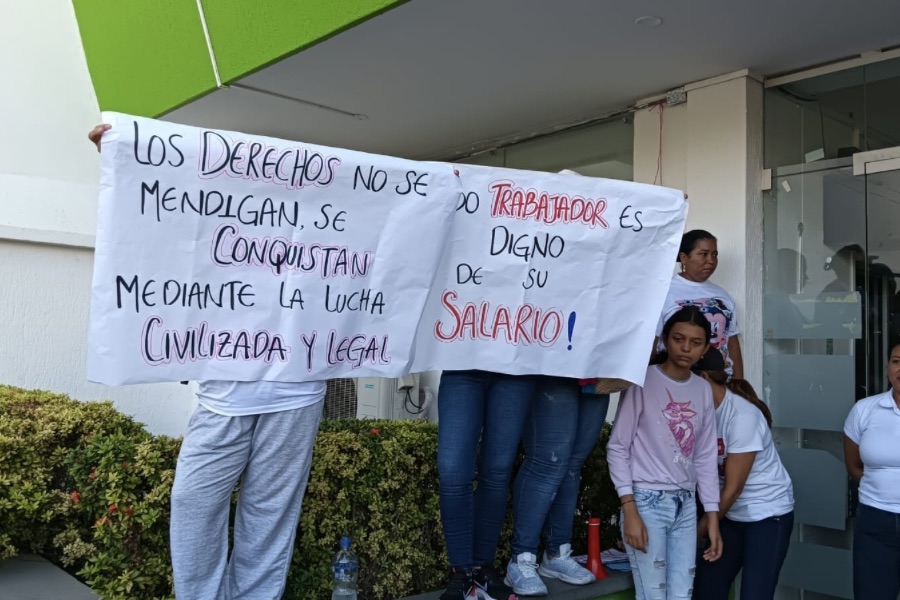 LOS DERECHOS NO SE
MENDIGAN, SE
CONQUISTAN
MEDIANTE LA LUCHA
CIVILIZADA Y LEGAL
DO TRABAJADOR ES
DIGNO
DE SU
SALARIO!